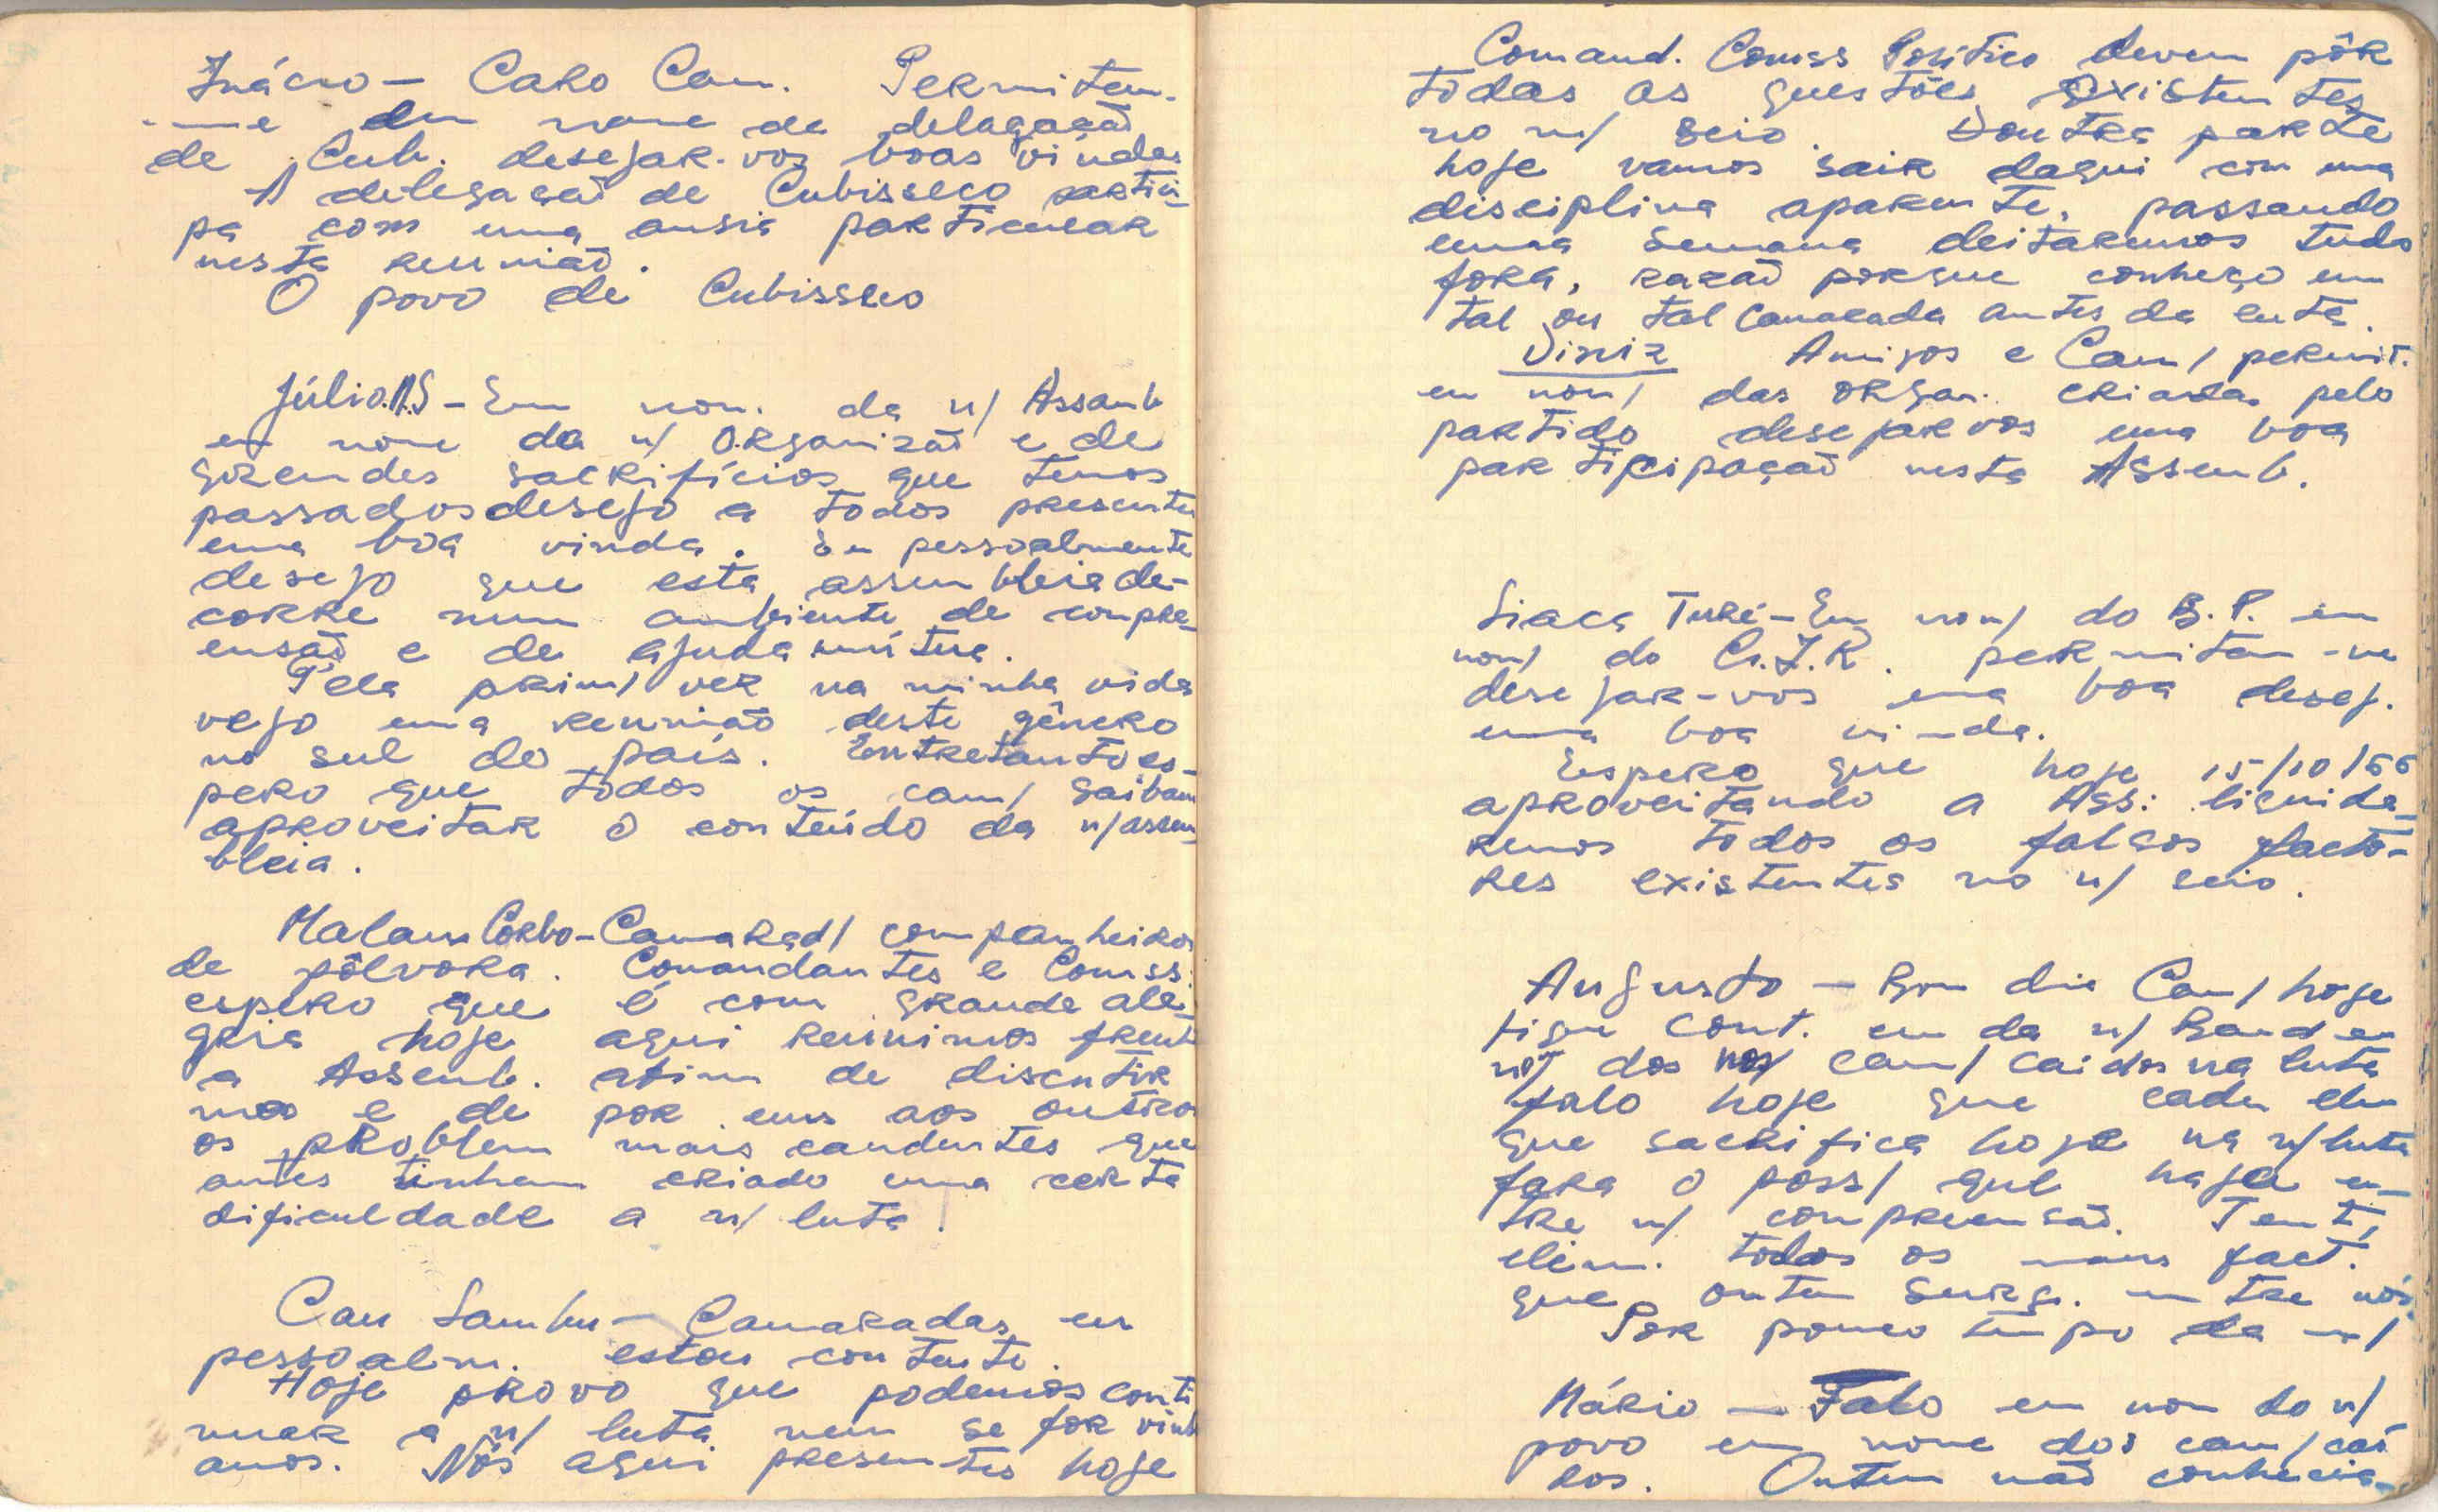 Inácio — Caro Cam. Permitem-
-me em nome da delagação
de Cub. desejar-vos boas vindas
A delegação de Cubisseco partici-
pa com uma ansia particular
nesta reunião.
O povo de Cubisseco
Júlio.N.S — Em nom. da n/ Assemb
em nome da n/ Organizaõ e de
grandes sacrifícios que temos
passados desejo a todos presentes
uma boa vinda. Eu pessoalmente
desejo que esta assembleia de-
corre num ambiente de compre-
ensão e de ajuda mútua.
Pela prim/ vez na minha vida
vejo uma reunião deste género
no sul do país. Entretanto es-
pero que todos os cam/ saibam
aproveitar o conteúdo da n/ assem
bleia.
Malam Corbo — Camarad/ companheiros
de pólvora. Comandantes e Comss.
espero que é com grande ale-
gria hoje aqui reunimos frente
a Assemb. afim de discutir
mos e de por uns aos outros
os problem mais candentes que
antes tinham criado uma certa
dificuldade a n/ luta.
Cau Sambu — Camaradas eu
pessoalm. estou contente.
Hoje provo que podemos conti
nuar a n/ luta nem se for vinte
anos. Nós aqui presentes hoje
Comand. Comss Político devem pôr
todas as questões existentes
no n/ seio. Doutra parte
hoje vamos sair daqui com uma
disciplina aparente, passando
uma semana deitaremos tudo
fora, razão porque conheço um
tal ou tal Camarada antes da luta.
Diniz Amigos e Cam/ permit.
em nom/ das organ. criadas pelo
partido desejar vos uma boa
participação nesta Assemb.
Siaca Turé — Em nom/ do B.P. em
nom/ do C.I.R. permitam-me
desejar-vos uma boa desej.
uma boa vinda.
Espero que hoje 15/10/66
aproveitando a Ass: liquida-
remos todos os falsos facto-
res existentes no n/ seio.
Augusto — Bom dia Cam/ hoje
fiqu cont. em da n/ Band em
no/ dos nos/ cam/ caidos na luta
falo hoje que cada um
que sacrifica hoje na n/ luta
fara o poss/ que haja en-
tre n/ compreensão. Tent,
elim. todos os maus fact.
que ontem surg. entre nós.
Por pouco tempo da n/
Mário — Falo em nom do n/
povo em nome dos cam/ caí
dos. Ontem não conhecia-